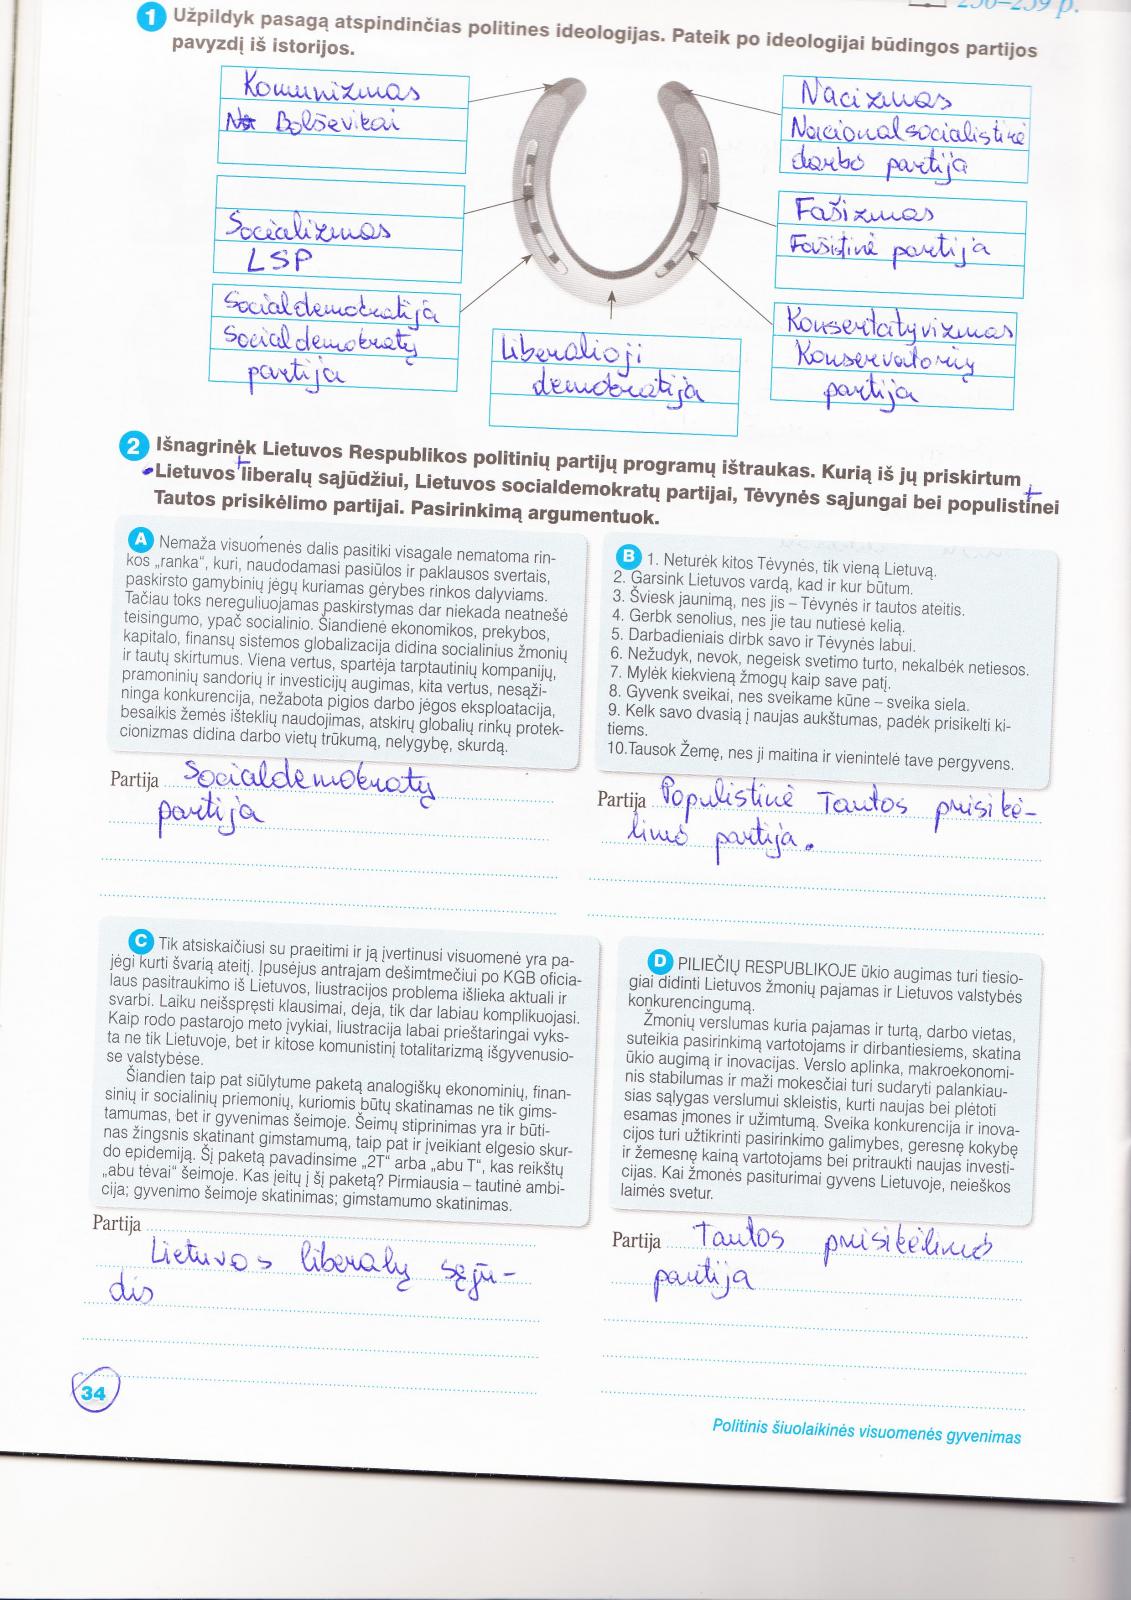 256–259 p.
1 Užpildyk pasagą atspindinčias politines ideologijas. Pateik po ideologijai būdingos partijos
pavyzdį iš istorijos.
Komunizmas
Bolševikai
Socializmas
LSP
Socialdemokratija
Socialdemokratų
partija
Liberalioji
demokratija
Nacizmas
Nacionalsocialistinė
darbo partija
Fašizmas
Fašistinė partija
Konservatyvizmas
Konservatorių
partija
2 Išnagrinėk Lietuvos Respublikos politinių partijų programų ištraukas. Kurią iš jų priskirtum
Lietuvos liberalų sąjūdžiui, Lietuvos socialdemokratų partijai, Tėvynės sąjungai bei populistinei
Tautos prisikėlimo partijai. Pasirinkimą argumentuok.
A Nemaža visuomenės dalis pasitiki visagale nematoma rin-
kos „ranka“, kuri, naudodamasi pasiūlos ir paklausos svertais,
paskirsto gamybinių jėgų kuriamas gėrybes rinkos dalyviams.
Tačiau toks nereguliuojamas paskirstymas dar niekada neatnešė
teisingumo, ypač socialinio. Šiandienė ekonomikos, prekybos,
kapitalo, finansų sistemos globalizacija didina socialinius žmonių
ir tautų skirtumus. Viena vertus, spartėja tarptautinių kompanijų,
pramoninių sandorių ir investicijų augimas, kita vertus, nesąži-
ninga konkurencija, nežabota pigios darbo jėgos eksploatacija,
besaikis žemės išteklių naudojimas, atskirų globalių rinkų protek-
cionizmas didina darbo vietų trūkumą, nelygybę, skurdą.
Partija Socialdemokratų
partija
B 1. Neturėk kitos Tėvynės, tik vieną Lietuvą.
2. Garsink Lietuvos vardą, kad ir kur būtum.
3. Šviesk jaunimą, nes jis – Tėvynės ir tautos ateitis.
4. Gerbk senolius, nes jie tau nutiesė kelią.
5. Darbadieniais dirbk savo ir Tėvynės labui.
6. Nežudyk, nevok, negeisk svetimo turto, nekalbėk netiesos.
7. Mylėk kiekvieną žmogų kaip save patį.
8. Gyvenk sveikai, nes sveikame kūne – sveika siela.
9. Kelk savo dvasią į naujas aukštumas, padėk prisikelti ki-
tiems.
10.Tausok Žemę, nes ji maitina ir vienintelė tave pergyvens.
Partija Populistinė Tautos prisikė-
limo partija.
C Tik atsiskaičiusi su praeitimi ir ją įvertinusi visuomenė yra pa-
jėgi kurti švarią ateitį. Įpusėjus antrajam dešimtmečiui po KGB oficia-
laus pasitraukimo iš Lietuvos, liustracijos problema išlieka aktuali ir
svarbi. Laiku neišspręsti klausimai, deja, tik dar labiau komplikuojasi.
Kaip rodo pastarojo meto įvykiai, liustracija labai prieštaringai vyks-
ta ne tik Lietuvoje, bet ir kitose komunistinį totalitarizmą išgyvenusio-
se valstybėse.
Šiandien taip pat siūlytume paketą analogiškų ekonominių, finan-
sinių ir socialinių priemonių, kuriomis būtų skatinamas ne tik gims-
tamumas, bet ir gyvenimas šeimoje. Šeimų stiprinimas yra ir būti-
nas žingsnis skatinant gimstamumą, taip pat ir įveikiant elgesio skur-
do epidemiją. Šį paketą pavadinsime „2T“ arba „abu T“, kas reikštų
„abu tėvai“ šeimoje. Kas įeitų į šį paketą? Pirmiausia – tautinė ambi-
cija; gyvenimo šeimoje skatinimas; gimstamumo skatinimas.
Partija
Lietuvos liberalų sąjū-
dis
D PILIEČIŲ RESPUBLIKOJE ūkio augimas turi tiesio-
giai didinti Lietuvos žmonių pajamas ir Lietuvos valstybės
konkurencingumą.
Žmonių verslumas kuria pajamas ir turtą, darbo vietas,
suteikia pasirinkimą vartotojams ir dirbantiesiems, skatina
ūkio augimą ir inovacijas. Verslo aplinka, makroekonomi-
nis stabilumas ir maži mokesčiai turi sudaryti palankiau-
sias sąlygas verslumui skleistis, kurti naujas bei plėtoti
esamas įmones ir užimtumą. Sveika konkurencija ir inova-
cijos turi užtikrinti pasirinkimo galimybes, geresnę kokybę
ir žemesnę kainą vartotojams bei pritraukti naujas investi-
cijas. Kai žmonės pasiturimai gyvens Lietuvoje, neieškos
laimės svetur.
Partija Tautos prisikėlimo
partija
34
Politinis šiuolaikinės visuomenės gyvenimas